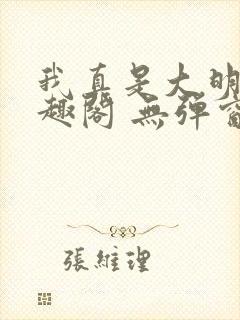 我真是大明
趣閣 無彈窗
張維理